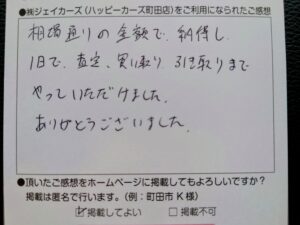 ●㈱ジェイカーズ（ハッピーカーズ町田店）をご利用になられたご感想
相場通りの金額で、納得し
1日で、査定、買い取り、引き取りまで
やっていただけました。
ありがとうございました。
●頂いたご感想をホームページに掲載してもよろしいですか？
掲載は匿名で行います。（例：町田市K様）
☑掲載してよい　□掲載不可